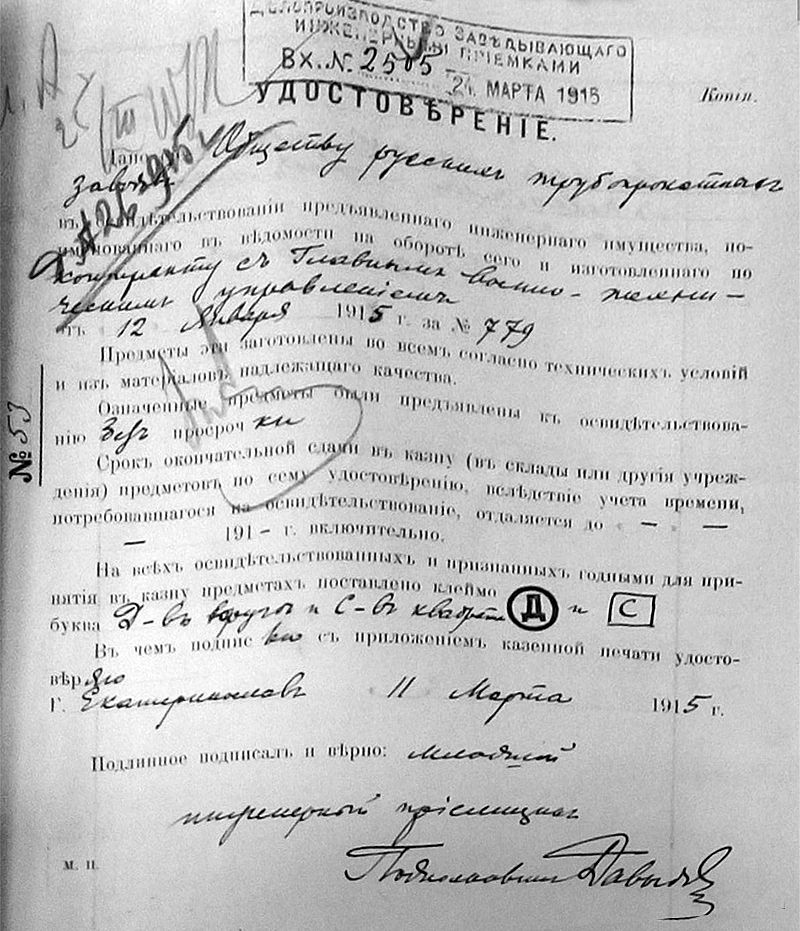 ДѢЛОПРОИЗВОДСТВО ЗАВѢДЫВАЮЩАГО
ИНЖЕНЕРНЫМИ ПРІЕМКАМИ
ВХ. № 2505
24 МАРТА 1915
Копія.
УДОСТОВѢРЕНІЕ.
Дано Обществу русскихъ трубопрокатныхъ
заводовъ
въ освидѣтельствованіи предъявленнаго инженернаго имущества, по-
именованнаго въ вѣдомости на оборотѣ сего и изготовленнаго по
контракту съ Главнымъ Военно-техни-
ческимъ управленіемъ
отъ 12 Января 1915 г. за № 779
Предметы эти заготовлены во всемъ согласно техническихъ условій
и изъ матеріаловъ надлежащаго качества.
Означенные предметы были предъявлены къ освидѣтельствова-
нію безъ просрочки
Срокъ окончательной сдачи въ казну (въ склады или другія учреж-
денія) предметовъ по сему удостовѣренію, вслѣдствіе учета времени,
потребовавшагося на освидѣтельствованіе, отдаляется до — —
— 191- г. включительно.
На всѣхъ освидѣтельствованныхъ и признанныхъ годными для при-
нятія въ казну предметахъ поставлено клеймо
буква Д-въ кругѣ и С-въ квадратѣ Д и С
Въ чемъ подписью съ приложеніемъ казенной печати удосто-
вѣряю
Г. Екатеринославъ 11 Марта 1915 г.
Подлинное подписалъ и вѣрно: младшій
инженерный пріемщикъ
Подполковникъ Давыдовъ
М. П.
№ 53